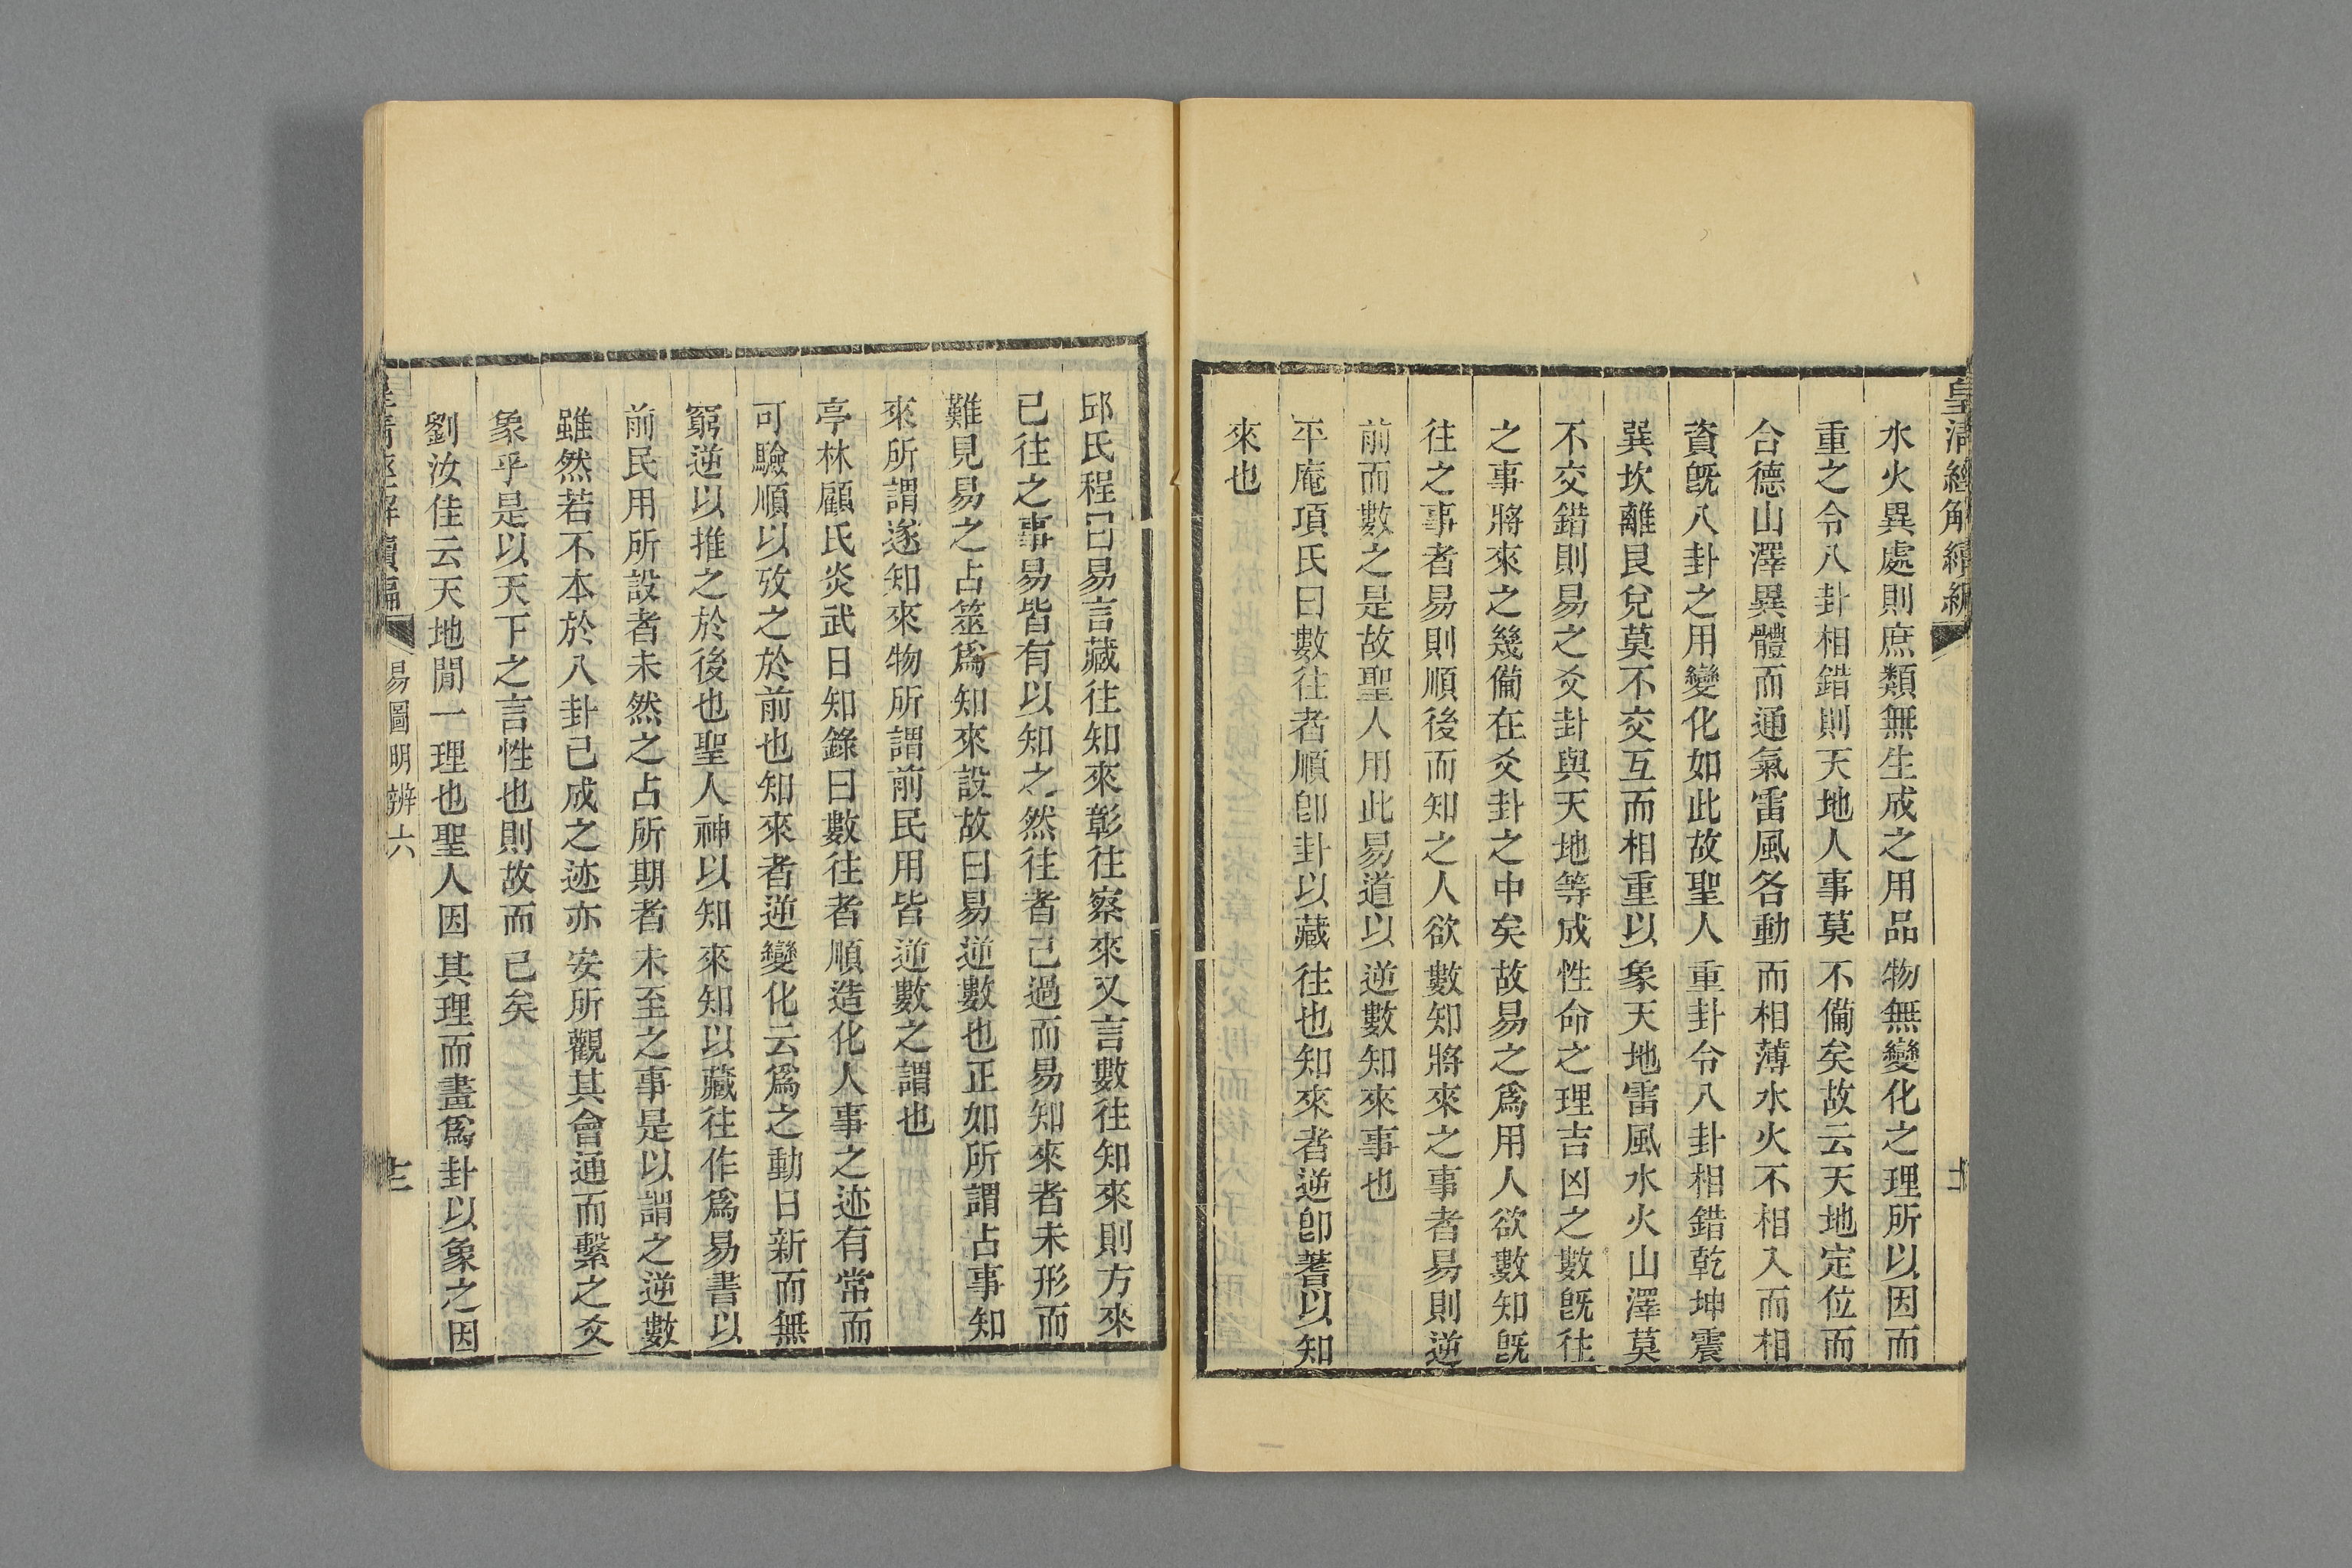 皇清經解續編
水火異處則庶類無生成之用品物無變化之理所以因而
重之令八卦相錯則天地人事莫不備矣故云天地定位而
合德山澤異體而通氣雷風各動而相薄水火不相入而相
資旣八卦之用變化如此故聖人重卦令八卦相錯乾坤震
巽坎離艮兌莫不交互而相重以象天地雷風水火山澤莫
不交錯則易之爻卦與天地等成性命之理吉凶之數旣往
之事將來之幾備在爻卦之中矣故易之爲用人欲數知旣
往之事者易則順後而知之人欲數知將來之事者易則逆
前而數之是故聖人用此易道以逆數知來事也
平庵項氏曰數往者順卽卦以藏往也知來者逆卽蓍以知
來也
邱氏程曰易言藏往知來彰往察來又言數往知來則方來
已往之事易皆有以知之然往者已過而易知來者未形而
難見易之占筮爲知來設故曰易逆數也正如所謂占事知
來所謂遂知來物所謂前民用皆逆數之謂也
亭林顧氏炎武日知錄曰數往者順造化人事之迹有常而
可驗順以攷之於前也知來者逆變化云爲之動日新而無
窮逆以推之於後也聖人神以知來知以藏往作爲易書以
前民用所設者未然之占所期者未至之事是以謂之逆數
雖然若不本於八卦已成之迹亦安所觀其會通而繫之爻
象乎是以天下之言性也則故而已矣
劉汝佳云天地閒一理也聖人因其理而畫爲卦以象之因
皇清經解續編
易圖明辨六